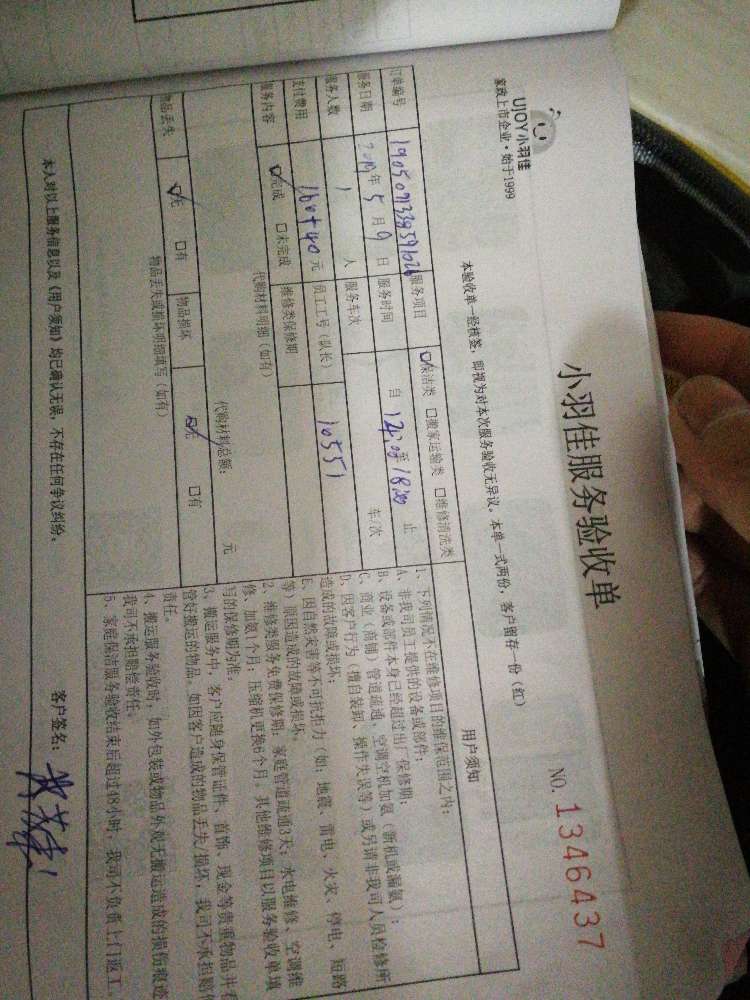 UJOY小羽佳
家政上市企业·始于1999
小羽佳服务验收单
NO. 1346437
本验收单一经核签，即视为对本次服务验收无异议。本单一式两份，客户留存一份（红）
订单编号 服务项目 保洁类 □搬家运输类 □维修清洗类
服务日期 2019年5月9日 服务时间 自 至 18:00 止
服务人数 1 人 服务车次 车/次
支付费用 160+40 元 员工工号(队长) 10551
服务内容 ☑完成 □未完成 维修类保修期
代购材料明细（如有）
代购材料总额： 元
物品丢失 ☑无 □有 物品损坏 ☑无 □有
物品丢失或损坏明细填写（如有）
用户须知
1、下列情况不在维修项目的维保范围之内：
A、非我司员工提供的设备或部件；
B、设备或部件本身已经超过出厂保修期；
C、商业（商铺）管道疏通、空调空机加氨（新机或漏氨）；
D、因客户行为（擅自装卸、操作失误等）或另请非我司人员检修所
造成的故障或损坏；
E、因自然灾害等不可抗拒力（如：地震、雷电、火灾、停电、短路
等）原因造成的故障或损坏。
2、维修类服务免费保修期：家庭管道疏通3天；水电维修、空调维
修、加氨1个月，压缩机更换6个月，其他维修项目以服务验收单填
写的保修期为准。
3、搬运服务中，客户应随身保管证件、首饰、现金等贵重物品并看
管好搬运的物品，如因客户造成的物品丢失/损坏，我司不承担赔偿
责任。
4、搬运服务验收时，如外包装或物品外观无搬运造成的损伤痕迹
我司不承担赔偿责任。
5、家庭保洁服务验收结束后超过48小时，我司不负责上门返工。
本人对以上服务信息以及《用户须知》均已确认无误，不存在任何争议纠纷。
客户签名：